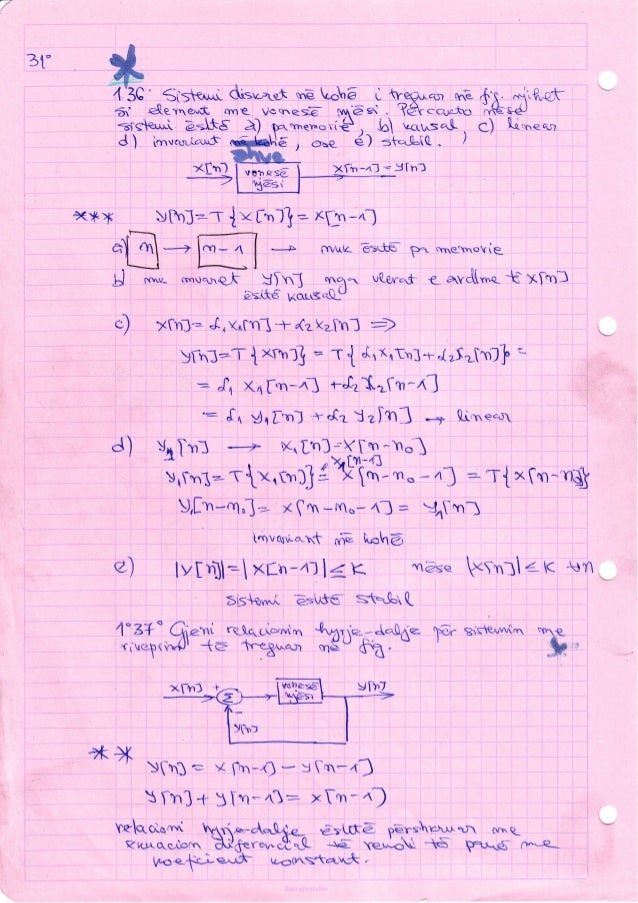 31°
1.36° Sistemi diskret në kohë i treguar në fig. njihet
si element me vonesë njësi. Përcakto nëse
sistemi është a) pa memorie, b) kausal, c) linear
d) invariant në kohë, ose e) stabil.
x[n] vonesë njësi x[n-1]=y[n]
*** y[n]=T{x[n]}=x[n-1]
a) n → n-1 → nuk është pa memorie
b) nuk mvaret y[n] nga vlerat e ardhme të x[n]
është kausal
c) x[n]=α₁x₁[n]+α₂x₂[n] =>
y[n]=T{x[n]} = T{α₁x₁[n]+α₂x₂[n]} =
= α₁ x₁[n-1] +α₂ x₂[n-1]
= α₁ y₁[n] +α₂ y₂[n] → linear
d) y₁[n] → x₁[n]=x[n-n₀]
x₁[n-1]
y₁[n]=T{x₁[n]}= x[n-n₀-1] = T{x[n-n₀]}
y[n-n₀]= x[n-n₀-1]= y₁[n]
invariant në kohë
e) |y[n]|=|x[n-1]|≤K nëse |x[n]|≤K ∀n
sistemi është stabil
1°37° Gjeni relacionin hyrje-dalje për sistemin me
riveprim të treguar në fig.
x[n] + Σ vonesë njësi y[n]
−
y[n]
** y[n] = x[n-1] - y[n-1]
y[n]+y[n-1]= x[n-1]
relacioni hyrje-dalje është përshkruar me
ekuacion diferencial të rendit të parë me
koeficient konstant.